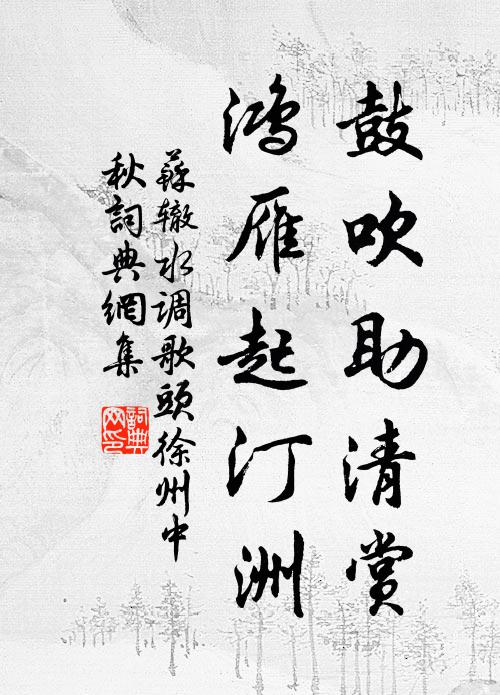 鼓吹助清賞
鴻雁起汀洲
蘇辙水调歌頭徐州中
秋詞典網集
詞典
网印